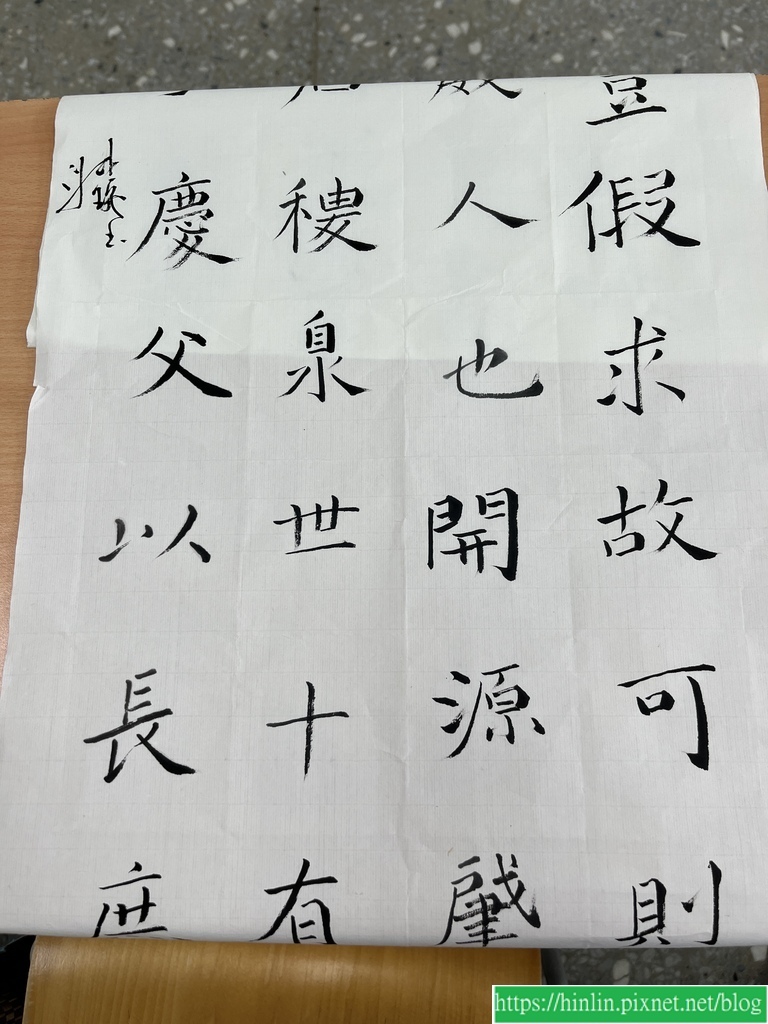 假求故可則
人也開源肈
稷泉世十有
慶父以長庶
https://hinlin.pixnet.net/blog